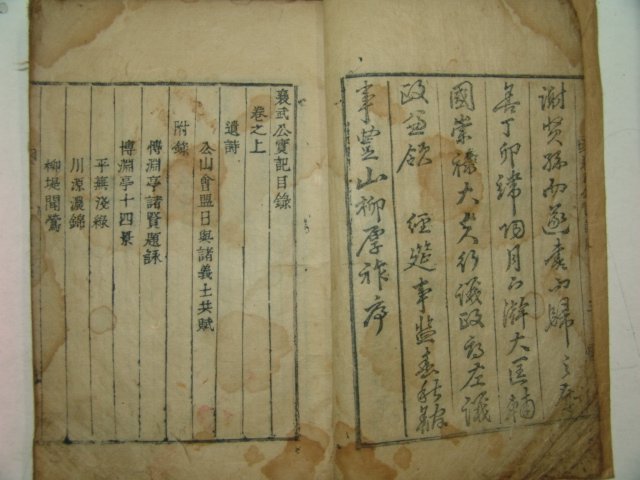 謝贤孫而遂書而歸之
善丁卯端陽月下澣大匡輔
國崇祿大夫行議政府左議
政兼領 經筵事監春秋館
事豊山柳厚祚序
襄武公實記目錄
卷之上
遺詩
公山會盟日與諸義士共賦
附錄
博淵亭諸賢題詠
博淵亭十四景
平蕪淺綠
川源濃錦
柳堤聞鶯